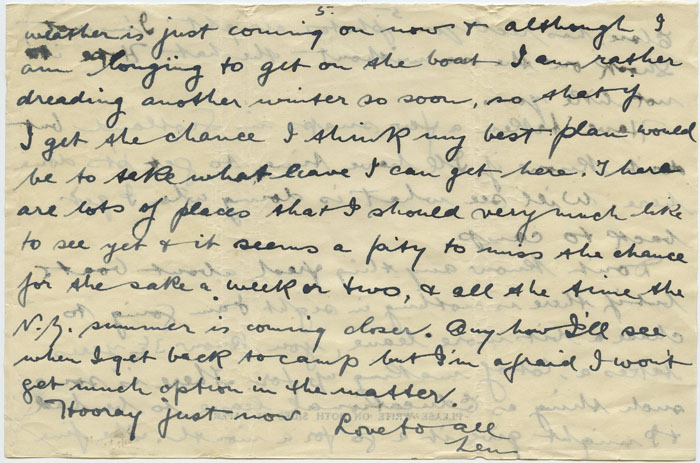 5.
weather is just coming on now & although I
am longing to get on the boat I am rather
dreading another winter so soon, so that if
I get the chance I think my best plan would
be to take what leave I can get here. There
are lots of places that I should very much like
to see yet & it seems a pity to miss the chance
for the sake a week or two, & all the time the
N.Z. summer is coming closer. Anyhow I'll see
when I get back to camp but I'm afraid I won't
get much option in the matter.
Hooray just now Love to all
Len